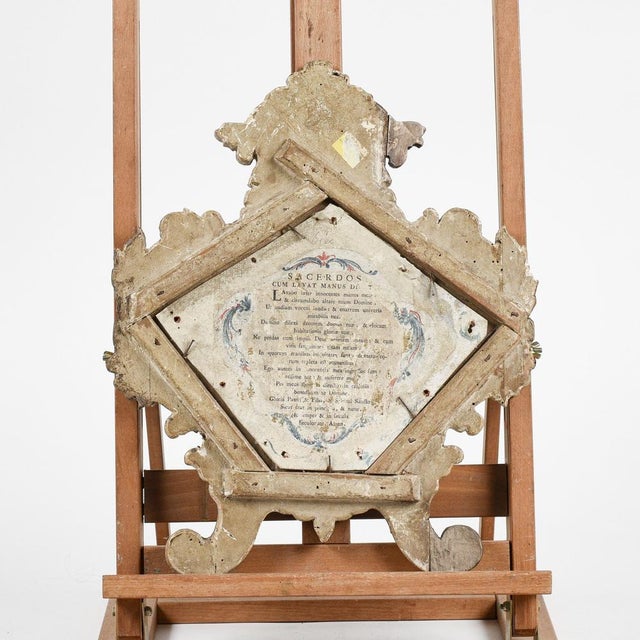 SACERDOS
CUM LAVAT MANUS
Lavabo inter innocentes manus
& circumdabo altare tuum Domine,
Ut audiam vocem laudis & enarrem universa
mirabilia tua.
Domine dilexi decorem domus tuæ, & locum
habitationis gloriæ tuæ.
Ne perdas cum impiis Deus animam meam, & cum
viris
In quorum manibus iniquitates sunt, dextera eorum
repleta est muneribus.
Ego autem in innocentia mea ingressus sum,
redime me, & miserere mei.
Pes meus stetit in directo, in ecclesiis
benedicam te Domine.
Gloria Patri, & Filio, & Spiritui Sancto.
Sicut erat in principio, & nunc, &
semper, & in sæcula
sæculorum. Amen.